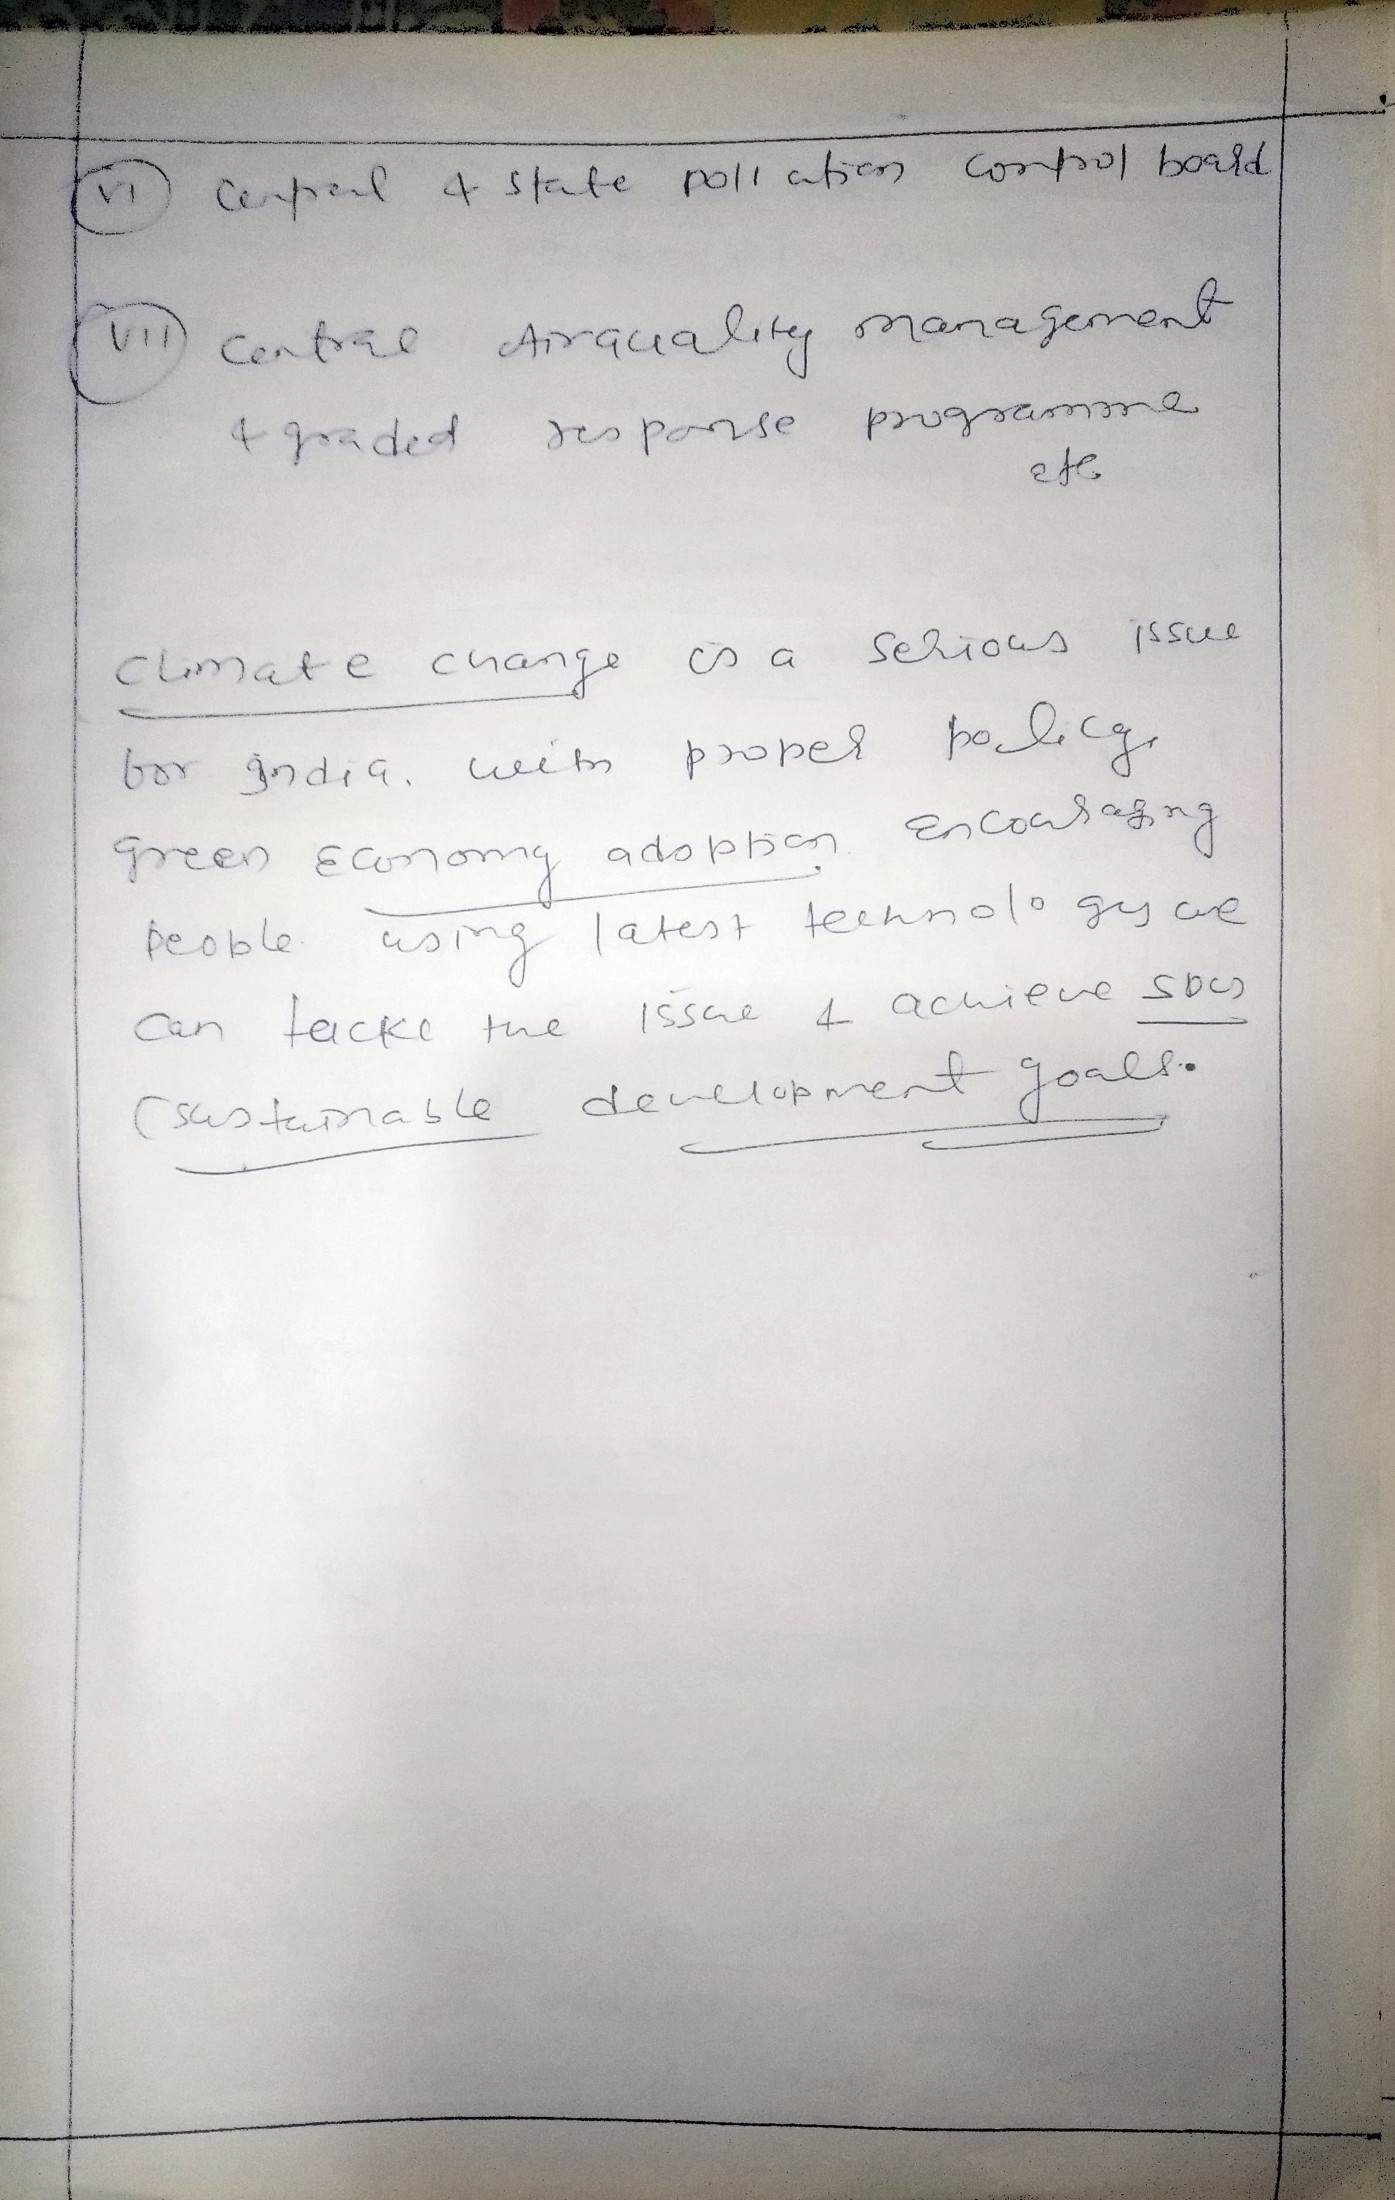 VI Central & state pollution control board
VII Central Airquality management
& graded response programme
etc
Climate change is a serious issue
for India. with proper policy,
green economy adoption encouraging
people using latest technology we
can tackle the issue & achieve SDGs
(sustainable development goals.